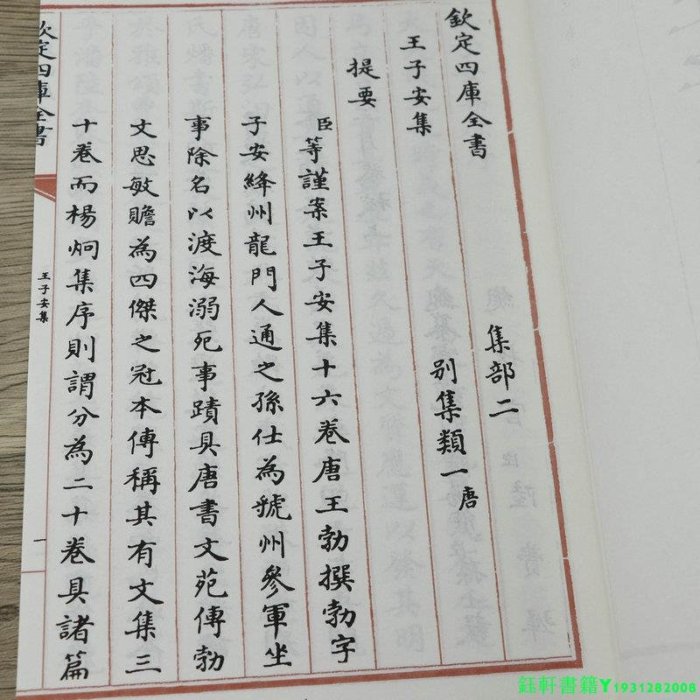 欽定四庫全書
集部二
王子安集
別集類一唐
提要
臣等謹案王子安集十六卷唐王勃撰勃字
子安絳州龍門人通之孫仕為虢州參軍坐
事除名以渡海溺死事蹟具唐書文苑傳勃
文思敏贍為四傑之冠本傳稱其有文集三
十卷而楊炯集序則謂分為二十卷具諸篇
欽定四庫全書
王子安集
一
鈺軒書籍Y1931282008